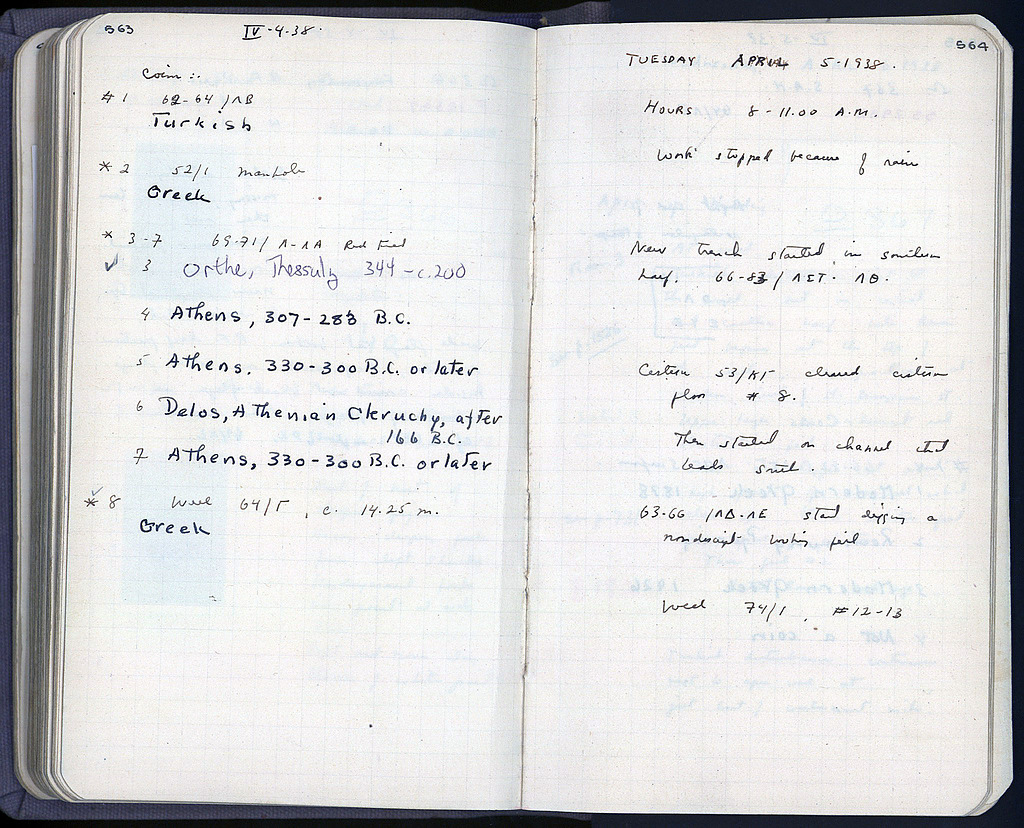 563
IV-4-38.
Coins:.
# 1 62-64/ΛΒ
Turkish
* 2 52/1 manhole
Greek
* 3-7 69-71/Λ-ΛΑ Red Fill
✓ 3 Orthe, Thessaly 344-c.200
4 Athens, 307-283 B.C.
5 Athens, 330-300 B.C. or later
6 Delos, Athenian Cleruchy, after
166 B.C.
7 Athens, 330-300 B.C. or later
✓ * 8 Well 64/Γ, c. 14.25 m.
Greek
564
TUESDAY APRIL 5-1938.
HOURS 8-11.00 A.M.
Work stopped because of rain
New trench started in southern
half. 66-83/ΛΣΤ-ΛΘ.
Cistern 53/ΚΓ cleared cistern
floor # 8.
Then started on channel that
leads south.
63-66/ΛΔ-ΛΕ start digging a
nondescript looking fill
Well 74/1, #12-13